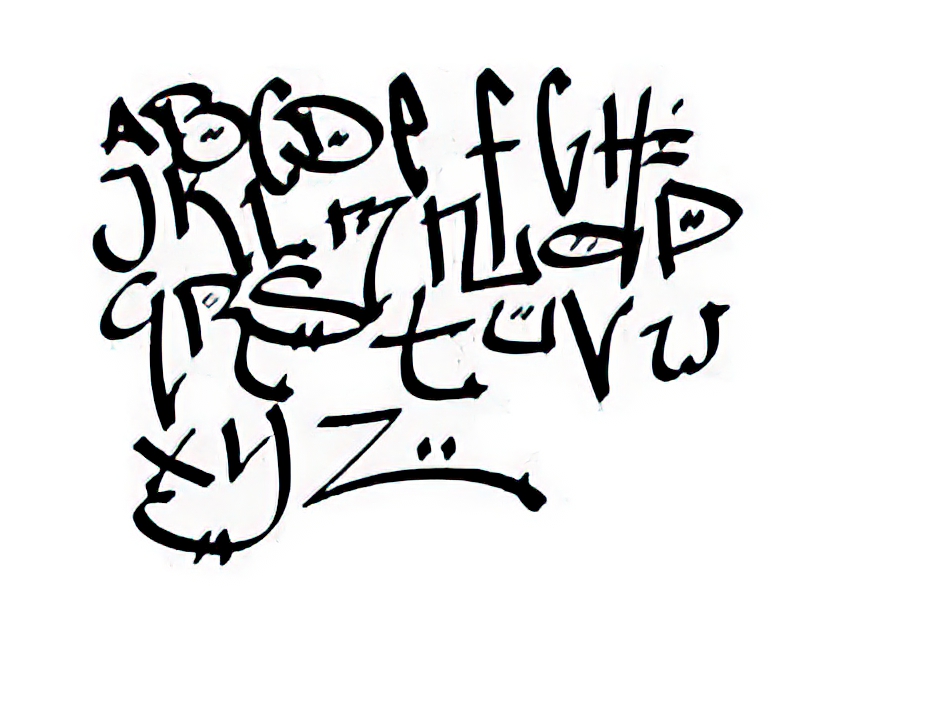 ABCDefGHi
JKLmnoP
qRStuVw
xyz